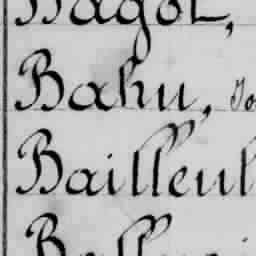 Bagot,
Bahu, Jo
Bailleul